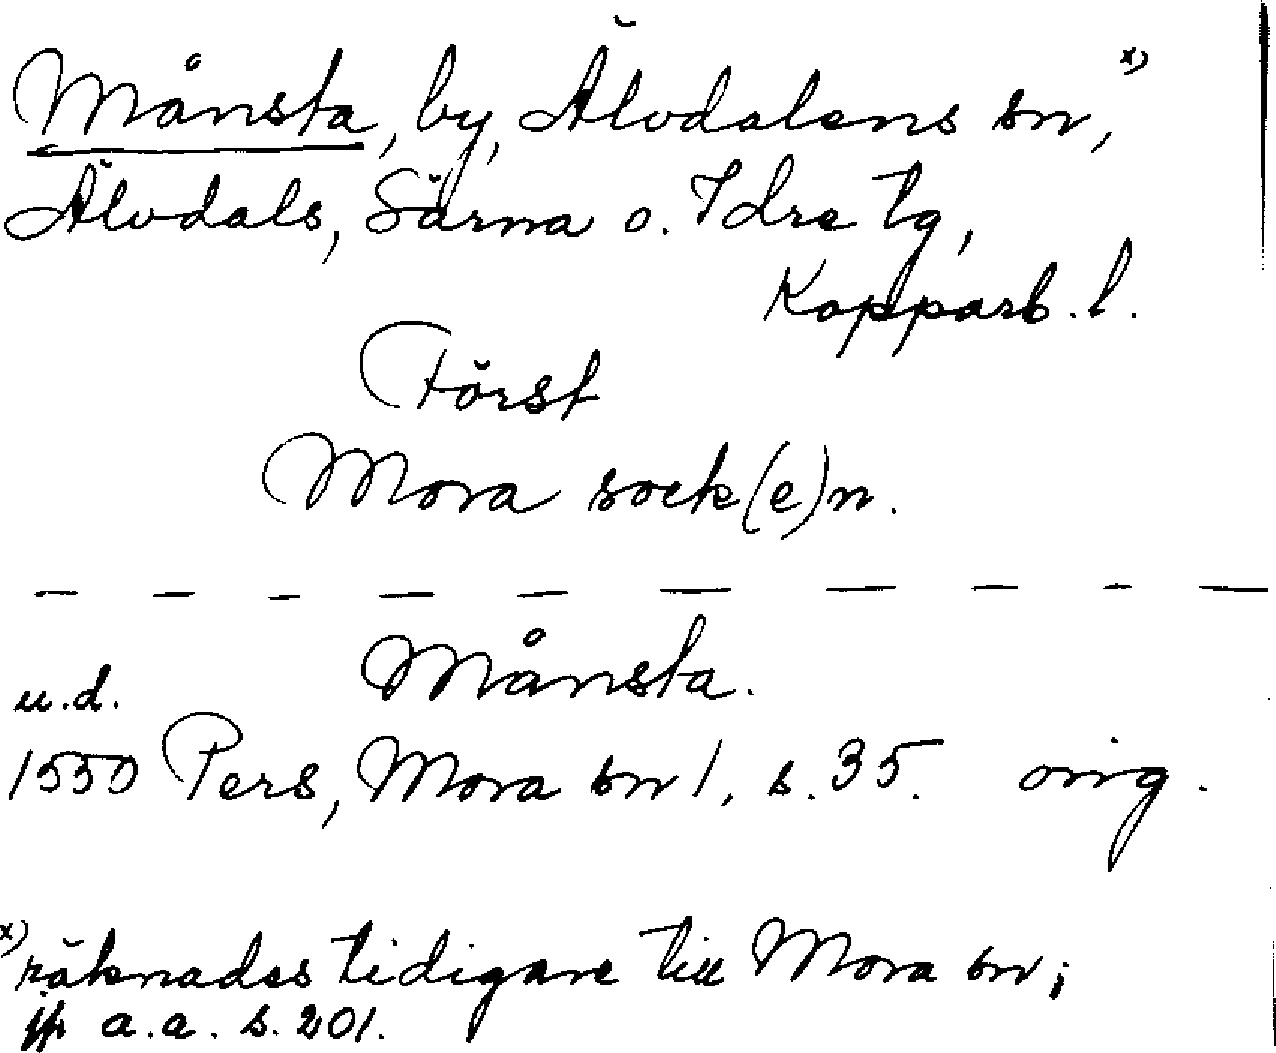 Månsta, by, Älvdalens sn, x)
Älvdals, Särna o. Idre tg,
Kopparb. l.
Först
Mora sock(e)n.
Månsta.
u.d.
1550 Pers, Mora sn 1, s. 35. orig.
x) räknades tidigare till Mora sn;
jfr a.a. s. 201.